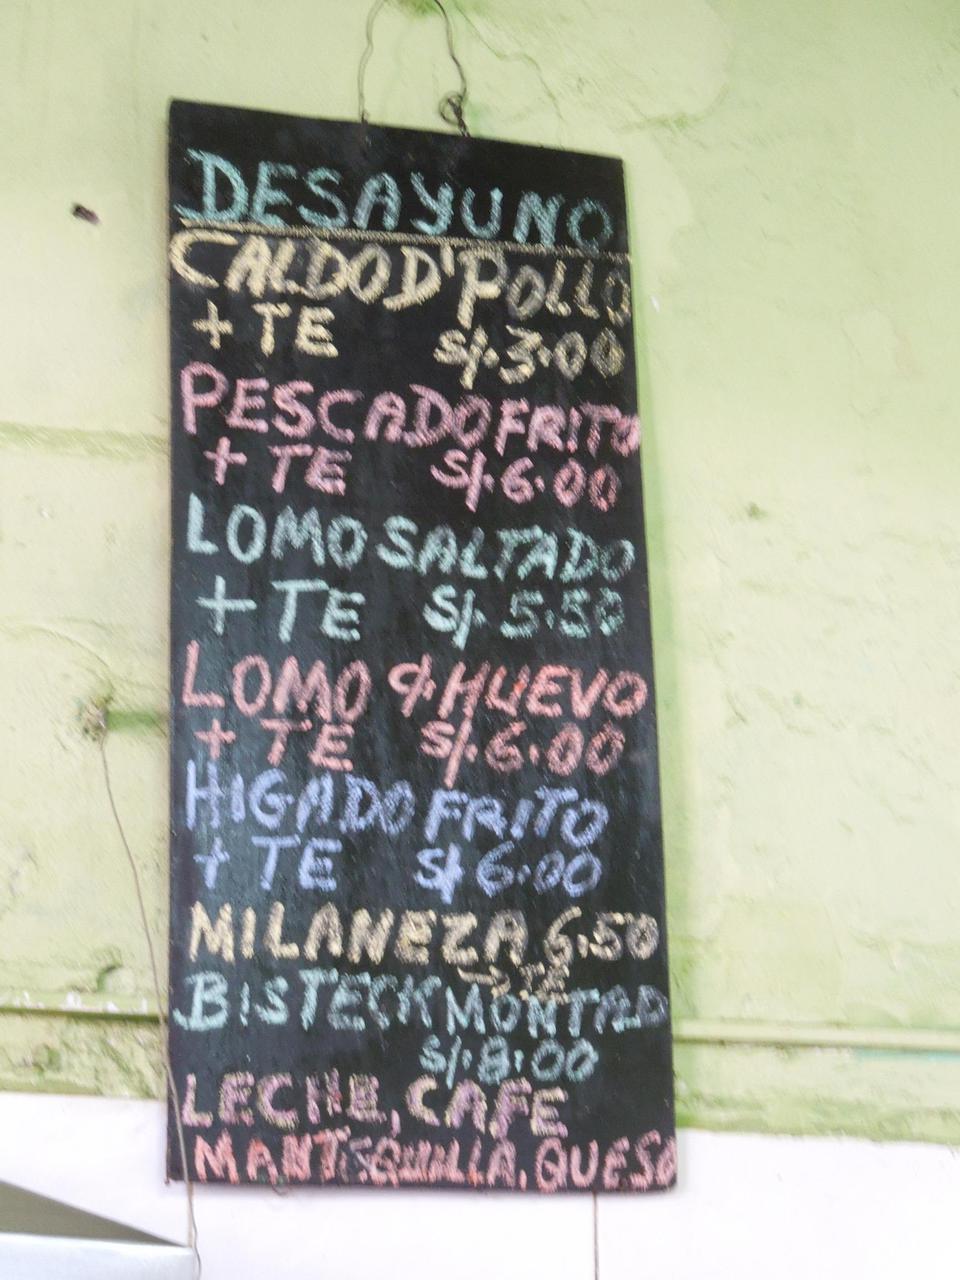 DESAYUNO
CALDO D' POLLO
+ TE S/. 3.00
PESCADO FRITO
+ TE S/. 6.00
LOMO SALTADO
+ TE S/. 5.50
LOMO C/. HUEVO
+ TE S/. 6.00
HIGADO FRITO
+ TE S/. 6.00
MILANEZA 6.50
→ TE
BISTECK MONTAD
S/. 8.00
LECHE, CAFE
MANTEQUILLA, QUESO